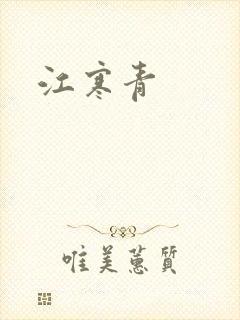 江寒青
唯美蕙質